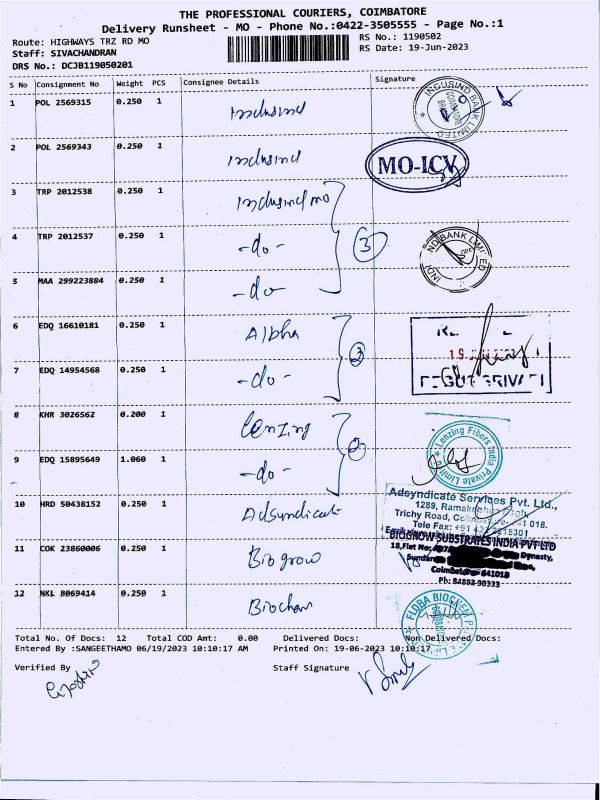 THE PROFESSIONAL COURIERS, COIMBATORE
Delivery Runsheet - MO - Phone No.:0422-3505555 - Page No.:1
Route: HIGHWAYS TRZ RD MO
RS No.: 1190502
Staff: SIVACHANDRAN
RS Date: 19-Jun-2023
DRS No.: DCJB119050201
S No Consignment No Weight PCS Consignee Details Signature
1 POL 2569315 0.250 1 Indusind
INDUSIND BANK LIMITED
2 POL 2569343 0.250 1 Indusind
MO-ICV
3 TRP 2012538 0.250 1 Indusind mo
4 TRP 2012537 0.250 1 -do- 3
BANK LIMITED
5 MAA 299223884 0.250 1 -do-
6 EDQ 16610181 0.250 1 Alpha
7 EDQ 14954568 0.250 1 -do-
8 KHR 3026562 0.200 1 Lenzing
Lenzing Fibers India Private Limited
9 EDQ 15895649 1.060 1 -do-
10 HRD 50438152 0.250 1 Adsyndicate
Adsyndicate Services Pvt. Ltd.,
1289,
Trichy Road, 018.
Tele Fax: +91
11 COK 23860006 0.250 1 Biogrow
BIOGROW SUBSTRATES INDIA PVT LTD
18,Flat No: Dynasty,
641018
Ph: 84893 90333
12 NKL 8069414 0.250 1
BIOCHEM
Total No. Of Docs: 12 Total COD Amt: 0.00 Delivered Docs: Non Delivered Docs:
Entered By :SANGEETHAMO 06/19/2023 10:10:17 AM Printed On: 19-06-2023 10:10:17
Verified By Staff Signature